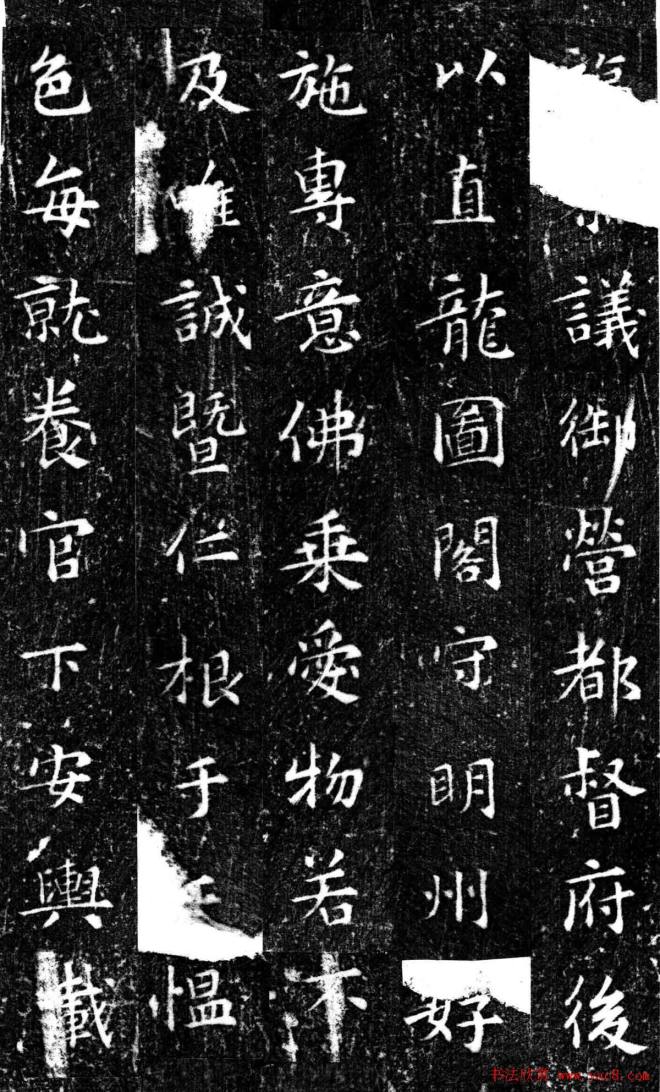 議御營都督府後
以直龍圖閣守明州好
施專意佛乗愛物若不
及唯誠暨仁根于愠
色每就養官下安輿載
书法欣赏 www.yac8.com